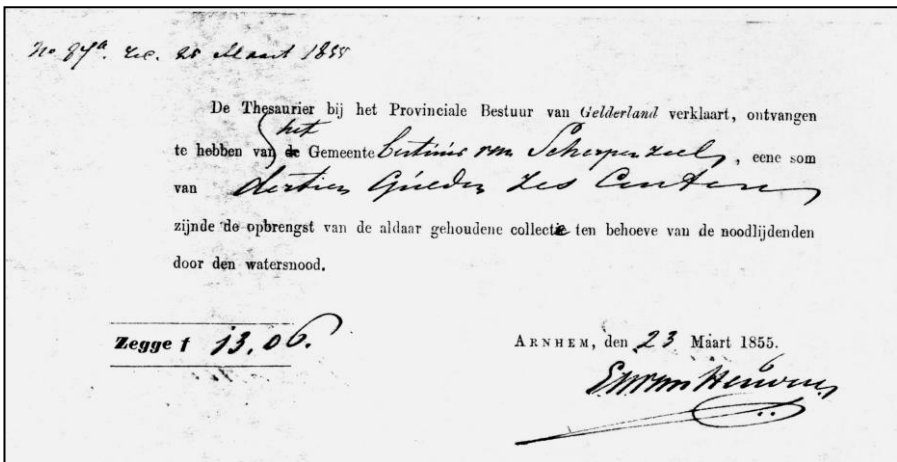 No 87a. rec. 28 Maart 1855
De Thesaurier bij het Provinciale Bestuur van Gelderland verklaart, ontvangen
het
te hebben van de Gemeente bestuur van Scherpenzeel, eene som
van dertien Gulden zes Centen
zijnde de opbrengst van de aldaar gehoudene collecte ten behoeve van de noodlijdenden
door den watersnood.
Zegge f 13.06.
ARNHEM, den 23 Maart 1855.